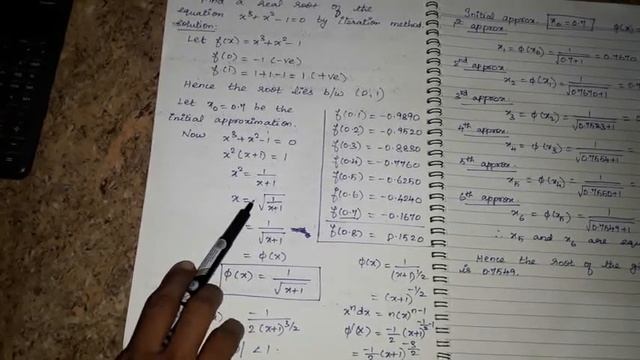 Find a real root of the
equation x³+x²-1=0 by iteration method
solution:
Let f(x) = x³+x²-1
f(0) = -1 (-ve)
f(1) = 1+1-1 = 1 (+ve)
Hence the root lies b/w (0,1)
Let x₀=0.7 be the
initial approximation.
Now x³+x²-1=0
x²(x+1) = 1
x² = 1/(x+1)
x = √(1/(x+1))
= 1/√(x+1)
= φ(x)
φ(x) = 1/√(x+1)
1/2(x+1)^3/2
< 1.
f(0.1) = -0.9890
f(0.2) = -0.9520
f(0.3) = -0.8830
f(0.4) = -0.7760
f(0.5) = -0.6250
f(0.6) = -0.4240
f(0.7) = -0.1670
f(0.8) = 0.1520
φ(x) = 1/(x+1)^1/2
= (x+1)^-1/2
xⁿdx = n(x)^n-1
φ'(x) = -1/2(x+1)^-1/2-1
= -1/2(x+1)^-3/2
Initial approx. x₀=0.7
approx
x₁ = φ(x₀) = 1/√(0.7+1) = 0.7670
2nd approx
x₂ = φ(x₁) = 1/√(0.7670+1) =
3rd approx
x₃ = φ(x₂) = 1/√(0.7523+1)
4th approx.
x₄ = φ(x₃) = 1/√(0.7554+1)
5th approx.
x₅ = φ(x₄) = 1/√(0.7550+1)
6th approx.
x₆ = φ(x₅) = 1/√(0.7549+1)
∴ x₅ and x₆ are
Hence the root of the
is 0.7549.